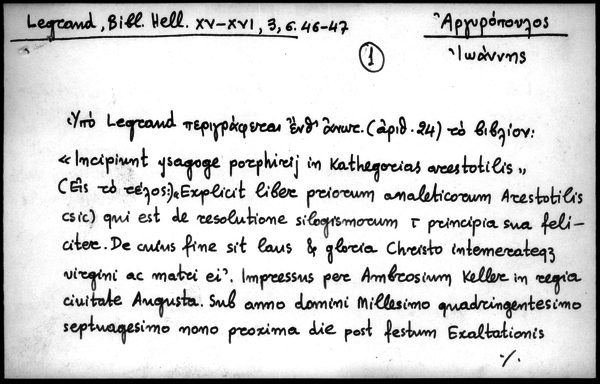 Legrand, Bibl. Hell. XV-XVI, 3, σ. 46-47
Ἀργυρόπουλος
Ἰωάννης
1
Ὑπὸ Legrand περιγράφεται ἔνθ' ἄνωτ. (ἀριθ. 24) τὸ βιβλίον:
«Incipiunt ysagoge porphirij in Kathegorias arestotilis»
(Εἰς τὸ τέλος:) «Explicit liber priorum analeticorum Arestotilis
(sic) qui est de resolutione silogismorum τ principia sua feli-
citer. De cuius fine sit laus & gloria Christo intemerateqꝫ
virgini ac matri ei'. Impressus per Ambrosium Keller in regia
ciuitate Augusta. Sub anno domini Millesimo quadringentesimo
septuagesimo nono proxima die post festum Exaltationis
./.